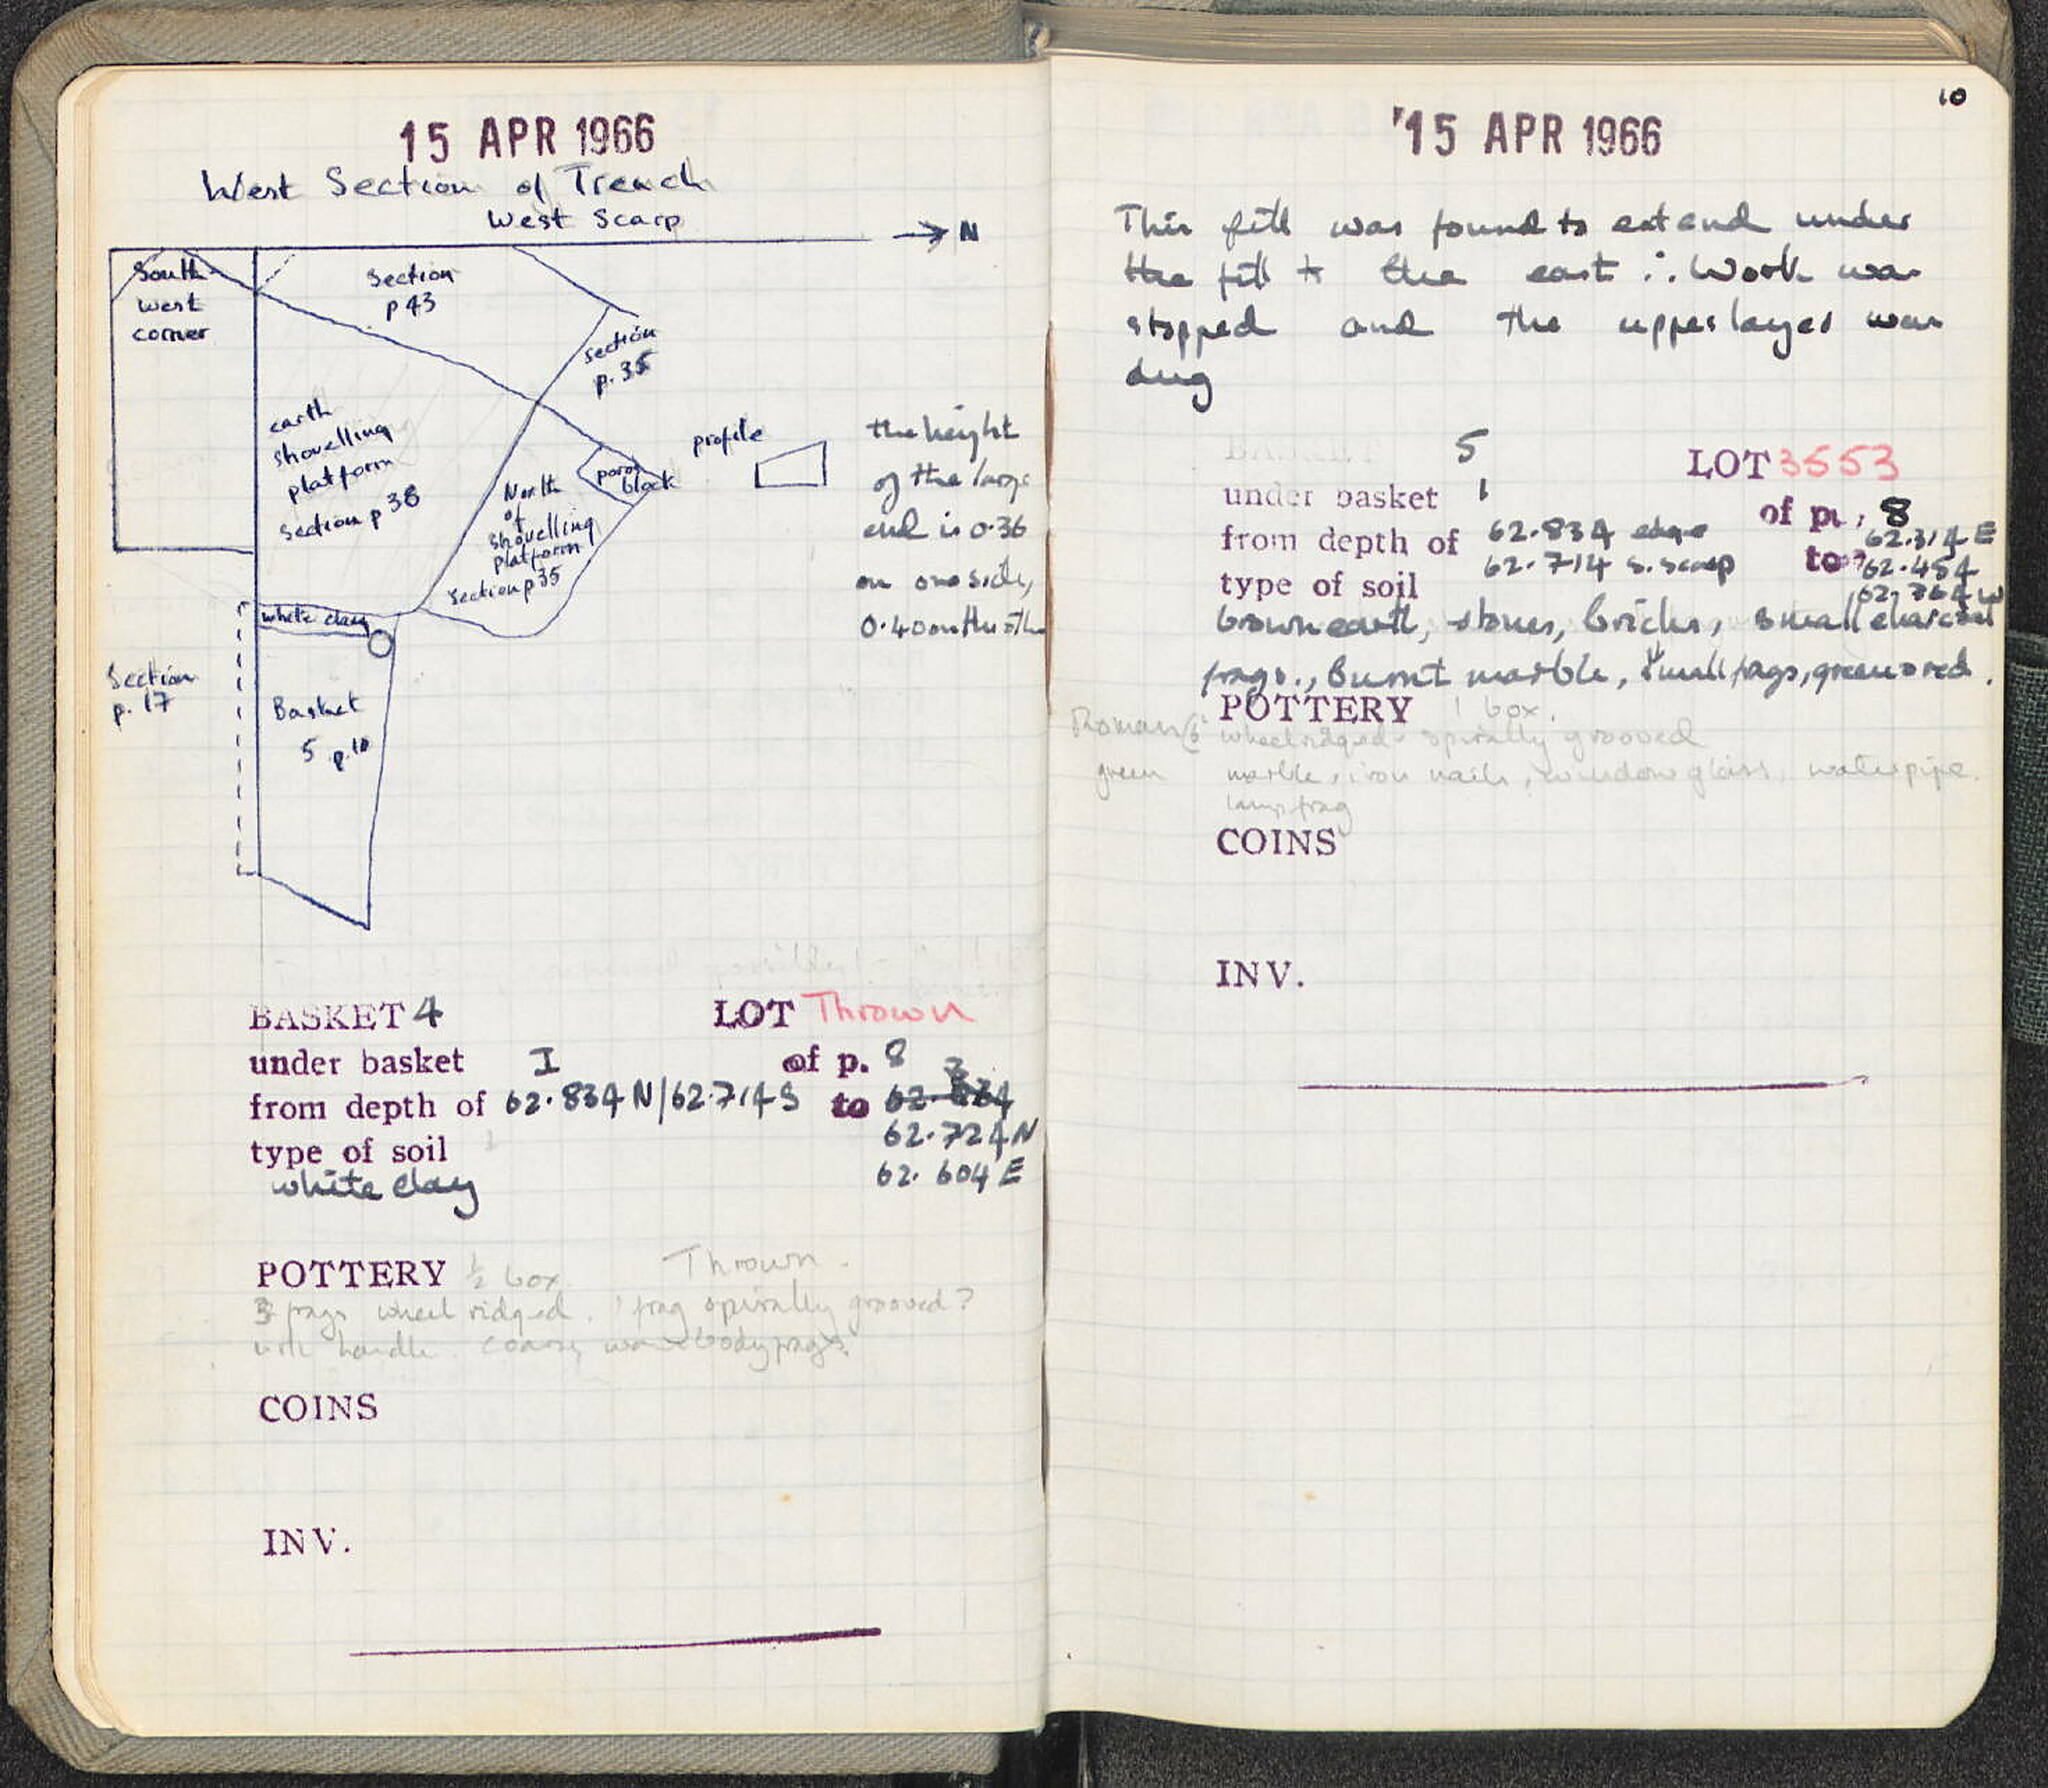 15 APR 1966
West Section of Trench
West Scarp
→ N
South
West
corner
Section
p 43
section
p. 35
earth
shovelling
platform
section p 38
North
of
shovelling
platform
Section p 35
poros
block
profile
the height
of the large
end is 0.36
on one side,
0.40 on the other
white clay
Section
p. 17
Basket
5 p. 10
BASKET 4 LOT Thrown
under basket I of p. 8
from depth of 62.834 N/62.714 S to
62.724 N
type of soil
62.604 E
white clay
POTTERY ½ box Thrown.
3 frags wheel ridged. 1 frag spirally grooved?
handle. coarse ware body frags.
COINS
INV.
10
15 APR 1966
This fill was found to extend under
the fill to the east ∴ Work was
stopped and the upper layer was
dug
BASKET 5 LOT 3553
under basket 1 of p. 8
from depth of 62.834 edge to 62.314 E
62.714 S. scarp 62.454
type of soil 62.764 W
brown earth, stones, bricks, small charcoal
frags., Burnt marble, small frags, green & red.
POTTERY 1 box.
Roman wheelridged spirally grooved
green marble, iron nails, window glass, waterpipe.
lamp frag
COINS
INV.